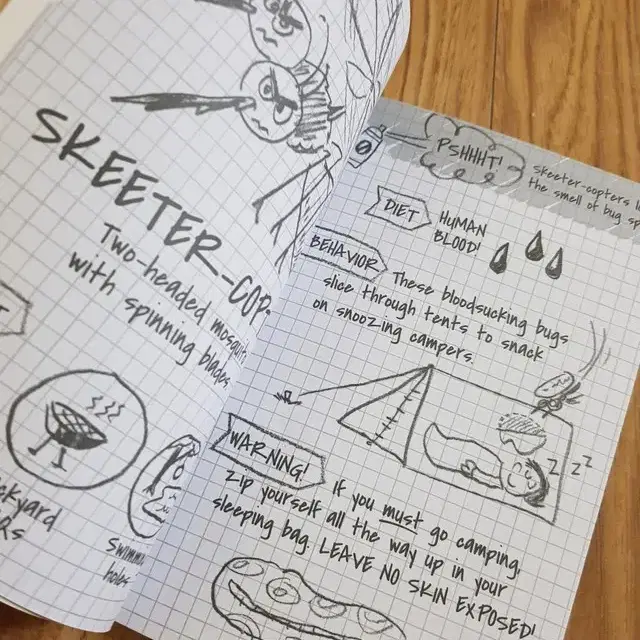 SKEETER-COP
Two-headed
with spinning blades
BEHAVIOR
PSHHHT!
Skeeter-copters
the smell of bug
DIET
HUMAN
BLOOD!
These bloodsucking bugs
slice through tents to snack
on snoozing campers.
Z Z Z
WARNING!
If you must go camping,
zip yourself all the way up in your
sleeping bag. LEAVE NO SKIN EXPOSED!